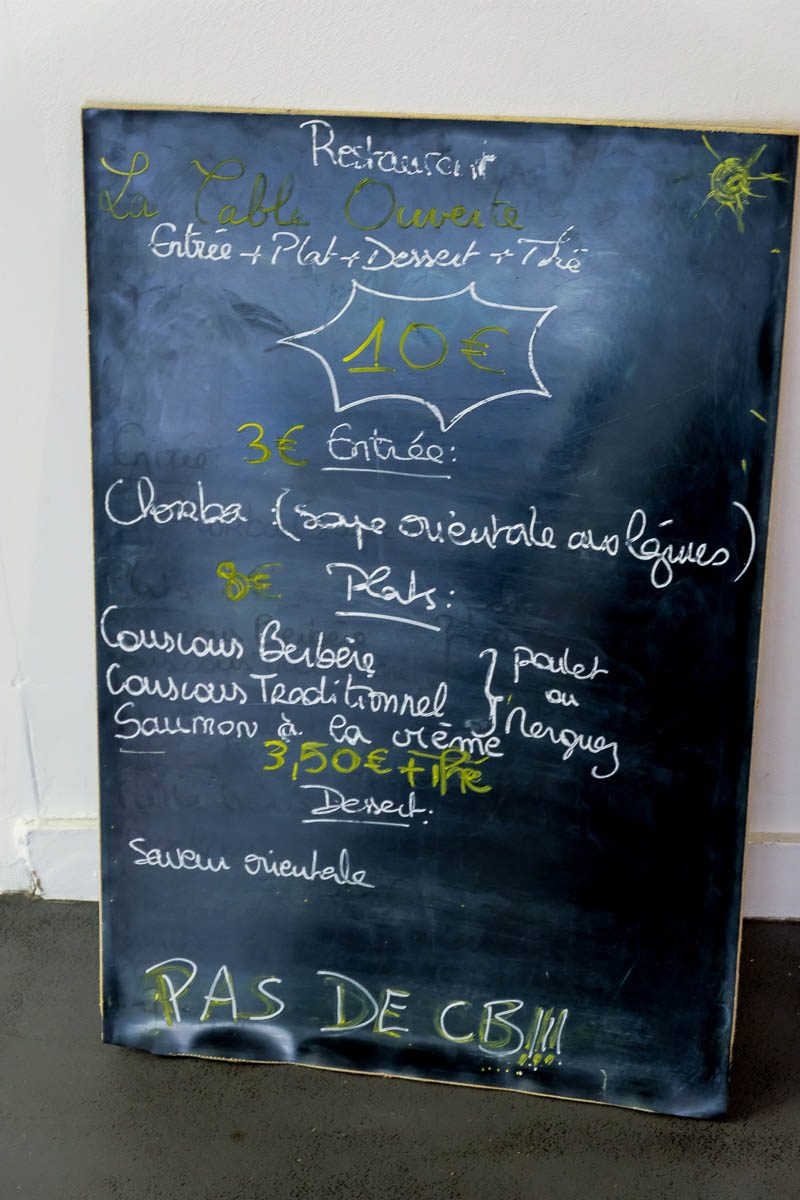 Restaurant
La Table Ouverte
Entrée + Plat + Dessert + Thé
10€
3€ Entrée:
Chorba (soupe orientale aux légumes)
8€ Plats:
Couscous Berbère
Couscous Traditionnel
} poulet ou Merguez
Saumon à la crème
3,50€ + Thé
Dessert:
Saveur orientale
PAS DE CB!!!